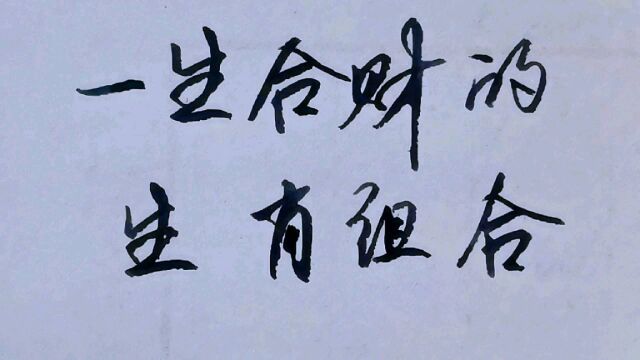 一生合财的
生肖组合